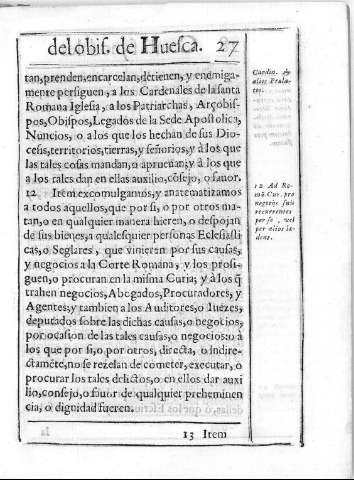 del obis. de Huesca. 27
tan, prenden, encarcelan, detienen, y enemiga-
mente persiguen, a los Cardenales de la santa
Romana Iglesia, a los Patriarchas, Arçobis-
pos, Obispos, Legados de la Sede Apostolica,
Nuncios, o a los que los hechan de sus Dio-
cesis, territorios, tierras, y señorios, y à los que
las tales cosas mandan, o aprueuan; y à los que
a los tales dan en ellas auxilio, cõsejo, o fauor.
12 Item excomulgamos, y anatematizamos
a todos aquellos, que por si, o por otros ma-
tan, o en qualquier manera hieren, o despojan
de sus bienes, a qualesquier personas Eclesiasti
cas, o Seglares, que vinieren por sus causas,
y negocios a la Corte Romana, y los prosi-
guen, o procuran en la misma Curia; y à los q̃
trahen negocios, Abogados, Procuradores, y
Agentes; y tambien a los Auditores, o Iuezes,
deputados sobre las dichas causas, o negocios,
por ocasion de las tales causas, o negocios: o à
los que por si, o por otros, directa, o indire-
ctamẽte, no se rezelan de cometer, executar, o
procurar los tales delictos, o en ellos dar auxi
lio, consejo, o fauor de qualquier preheminen
cia, o dignidad fueren.
13 Item
Cardin. &
alios Prala-
tos.
12 Ad Ro-
mã Cur. pro
negotijs suis
recurrentes
per se, vel
per alios la-
dens.